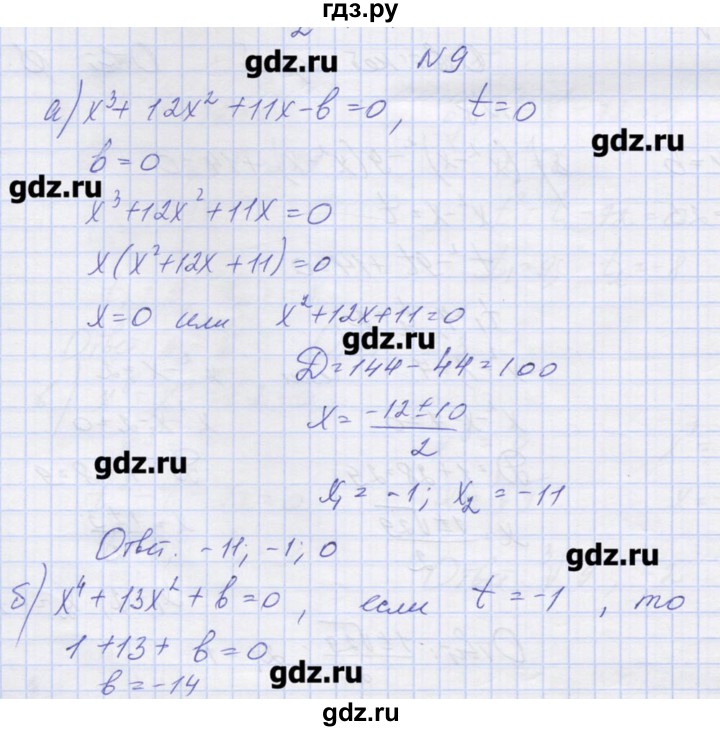 гдз.ру
2
gdz.ru
N 9
а) x³ + 12x² + 11x - b = 0, t = 0
gdz.ru
b = 0
gdz.ru
x³ + 12x² + 11x = 0
x(x² + 12x + 11) = 0
x = 0 или x² + 12x + 11 = 0
gdz.ru
D = 144 - 44 = 100
x = (-12 ± 10)/2
gdz.ru
x₁ = -1; x₂ = -11
Ответ. -11; -1; 0
gdz.ru
б) x⁴ + 13x² + b = 0, если t = -1, то
1 + 13 + b = 0
gdz.ru
b = -14
gdz.ru